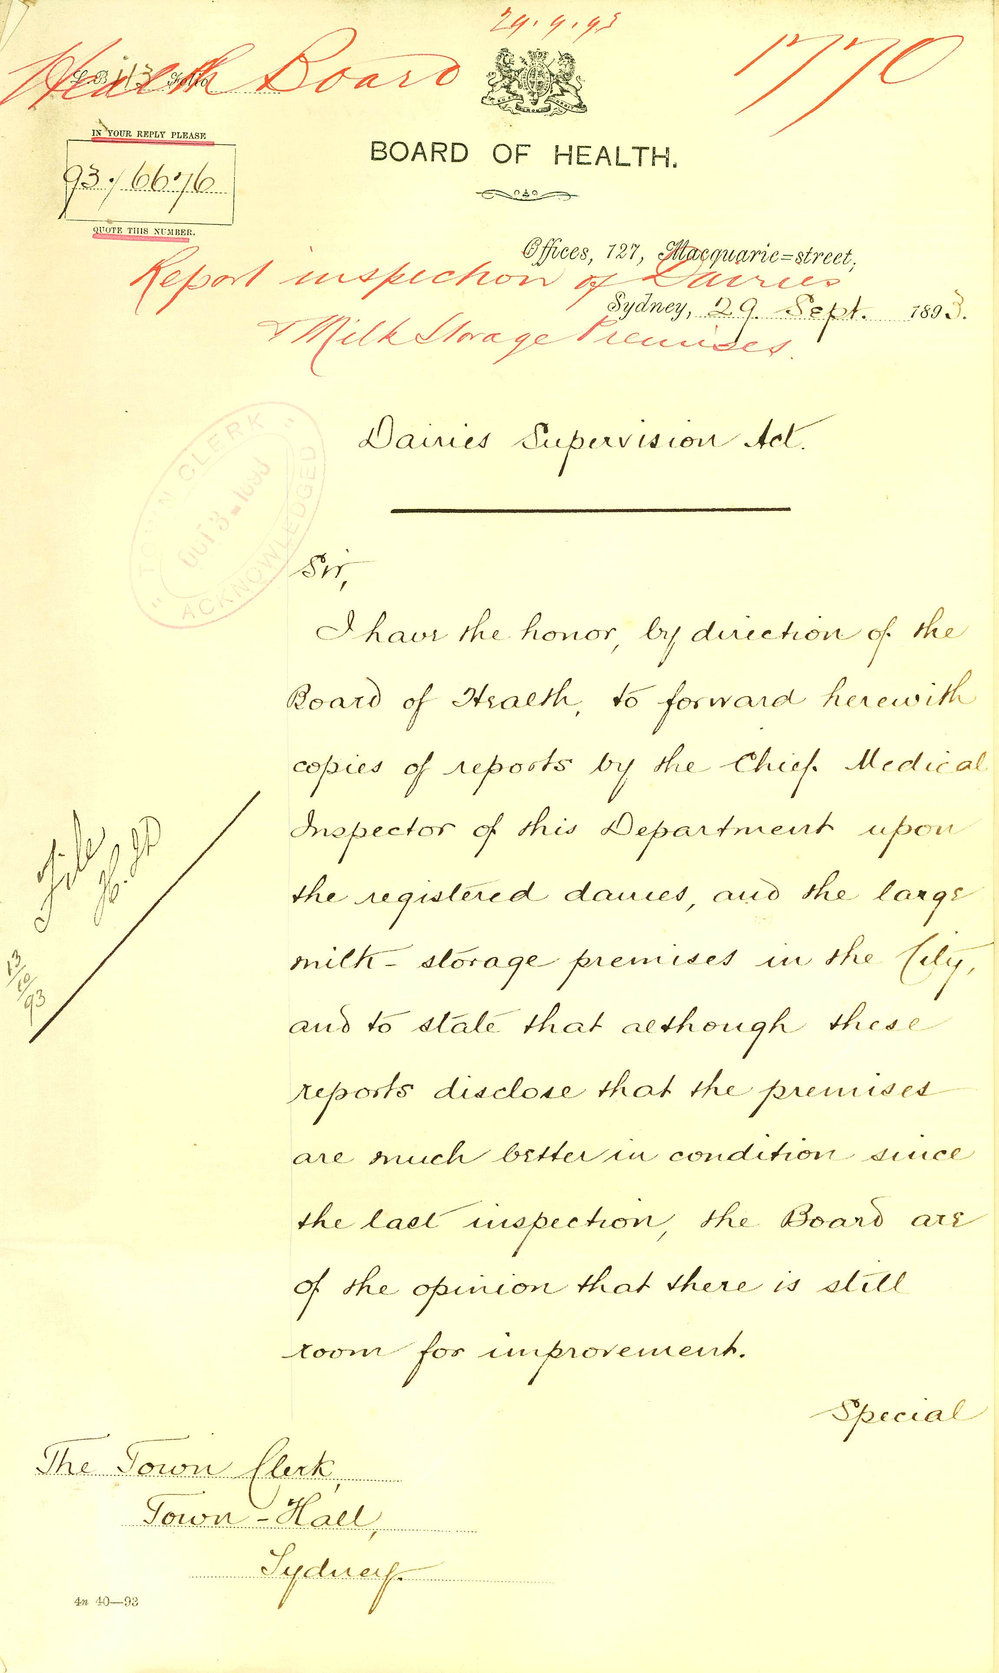 29.9.93
Health Board
1770
IN YOUR REPLY PLEASE
93./6676
QUOTE THIS NUMBER.
BOARD OF HEALTH.
Offices, 127, Macquarie=street,
Sydney, 29. Sept. 1893.
Report inspection of Dairies
& Milk Storage Premises.
Dairies Supervision Act.
"TOWN CLERK"
OCT 3-1893
ACKNOWLEDGED
Sir,
I have the honor, by direction of the
Board of Health, to forward herewith
copies of reports by the Chief Medical
Inspector of this Department upon
the registered dairies, and the large
milk-storage premises in the City,
and to state that although these
reports disclose that the premises
are much better in condition since
the last inspection, the Board are
of the opinion that there is still
room for improvement.
Special
File
13/10/93
The Town Clerk,
Town-Hall,
Sydney.
4n 40—93